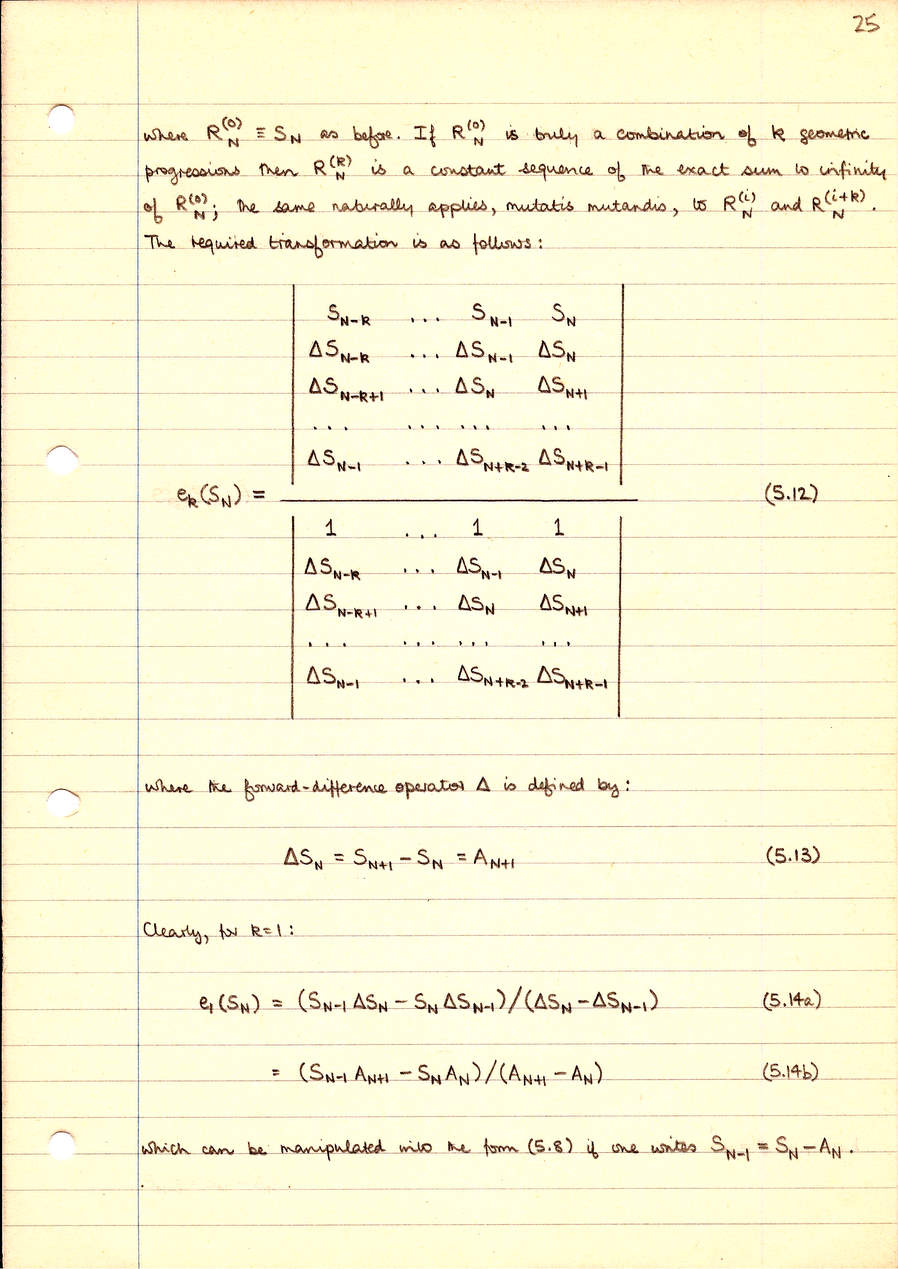 25
where R_N^(0) ≡ S_N as before. If R_N^(0) is truly a combination of k geometric
progressions then R_N^(k) is a constant sequence of the exact sum to infinity
of R_N^(0); the same naturally applies, mutatis mutandis, to R_N^(i) and R_N^(i+k).
The required transformation is as follows:
S_{N-k} ... S_{N-1} S_N
ΔS_{N-k} ... ΔS_{N-1} ΔS_N
ΔS_{N-k+1} ... ΔS_N ΔS_{N+1}
... ... ... ...
ΔS_{N-1} ... ΔS_{N+k-2} ΔS_{N+k-1}
e_k(S_N) = (5.12)
1 ... 1 1
ΔS_{N-k} ... ΔS_{N-1} ΔS_N
ΔS_{N-k+1} ... ΔS_N ΔS_{N+1}
... ... ... ...
ΔS_{N-1} ... ΔS_{N+k-2} ΔS_{N+k-1}
where the forward-difference operator Δ is defined by:
ΔS_N = S_{N+1} - S_N = A_{N+1} (5.13)
Clearly, for k=1:
e_1(S_N) = (S_{N-1} ΔS_N - S_N ΔS_{N-1})/(ΔS_N - ΔS_{N-1}) (5.14a)
= (S_{N-1} A_{N+1} - S_N A_N)/(A_{N+1} - A_N) (5.14b)
which can be manipulated into the form (5.8) if one writes S_{N-1} = S_N - A_N.